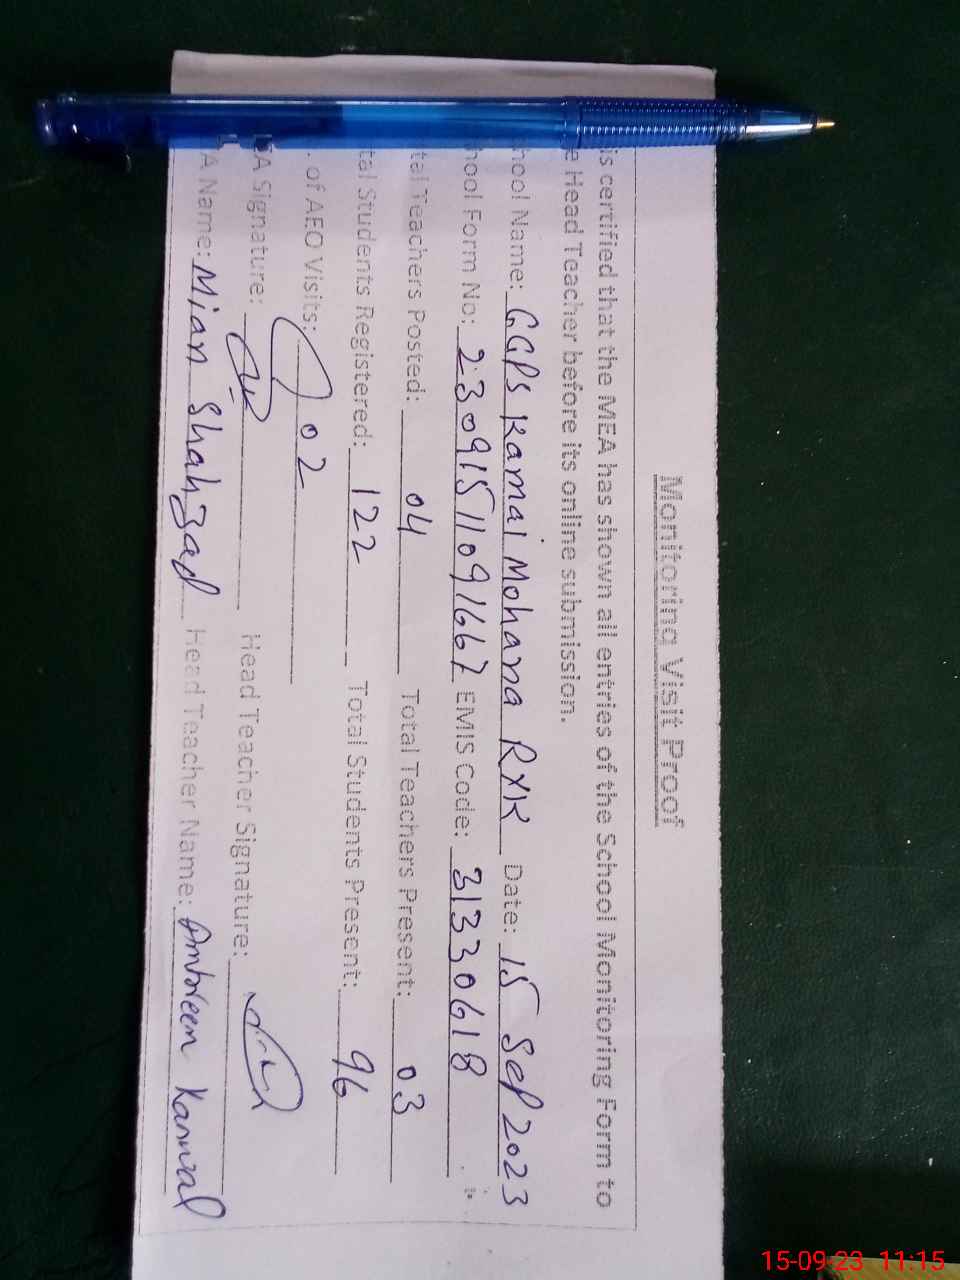 Monitoring Visit Proof
is certified that the MEA has shown all entries of the School Monitoring Form to
e Head Teacher before its online submission.
hool Name: GGPS Kamal Mohana RYK Date: 15 Sep 2023
hool Form No: 23091511091667 EMIS Code: 31330618
tal Teachers Posted: 04 Total Teachers Present: 03
tal Students Registered: 122 Total Students Present: 96
. of AEO Visits: 02
EA Signature: Head Teacher Signature:
A Name: Mian Shahzad Head Teacher Name: Ambreen Kanwal
15-09-23 11:15